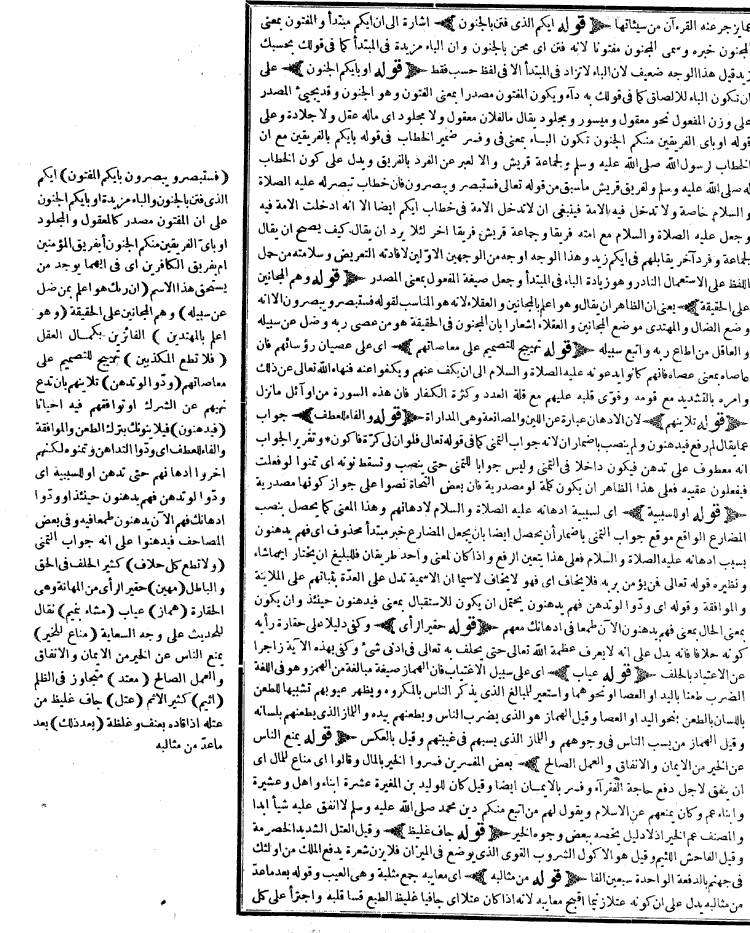 عما يزجر عنه القرءآن من سيئاتها قوله ايكم الذى فتن بالجنون اشارة الى ان ايكم مبتدأ والمفتون بمعنى
المجنون خبره وسمى المجنون مفتونا لانه فتن اى محن بالجنون وان الباء مزيدة فى المبتدأ كما فى قولك بحسبك
زيد قيل هذا الوجه ضعيف لان الباء لا تزاد فى المبتدأ الا فى لفظ حسب فقط قوله او بايكم الجنون على
ان تكون الباء للالصاق كما فى قولك به دآء ويكون المفتون مصدرا بمعنى الفتون وهو الجنون وقد يجيئ المصدر
على وزن المفعول نحو معقول وميسور ومجلود يقال ما لفلان معقول ولا مجلود اى ماله عقل ولا جلادة وعلى
قوله او باى الفريقين منكم الجنون تكون الباء بمعنى فى وفسر ضمير الخطاب فى قوله بايكم بالفريقين مع ان
الخطاب لرسول الله صلى الله عليه وسلم ولجماعة قريش والا لعبر عن الفرد بالفريق ويدل على كون الخطاب
له صلى الله عليه وسلم ولفريق قريش ما سبق من قوله تعالى فستبصر ويبصرون فان خطاب تبصر له عليه الصلاة
والسلام خاصة ولا تدخل فيه الامة فينبغى ان لا تدخل الامة فى خطاب ايكم ايضا الا انه ادخلت الامة فيه
وجعل عليه الصلاة والسلام مع امته فريقا وجماعة قريش فريقا اخر لئلا يرد ان يقال كيف يصح ان يقال
لجماعة وفرد آخر يقابلهم فى ايكم زيد وهذا الوجه اوجه من الوجهين الاولين لافادته التعريض وسلامته من حمل
اللفظ على الاستعمال النادر وهو زيادة الباء فى المبتدأ وجعل صيغة المفعول بمعنى المصدر قوله وهم المجانين
على الحقيقة يعنى ان الظاهر ان يقال وهو اعلم بالمجانين والعقلاء لانه هو المناسب لقوله فستبصر ويبصرون الا انه
وضع الضال والمهتدى موضع المجانين والعقلاء اشعارا بان المجنون فى الحقيقة هو من عصى ربه وضل عن سبيله
والعاقل من اطاع ربه واتبع سبيله قوله تهييج للتصميم على معاصاتهم اى على عصيان رؤسائهم فان
عاصاه بمعنى عصاه فانهم كانوا يدعونه عليه الصلاة والسلام الى ان يكف عنهم ويكفوا عنه فنهاه الله تعالى عن ذلك
وامره بالتشديد مع قومه وقوى قلبه عليهم مع قلة العدد وكثرة الكفار فان هذه السورة من اوآئل مانزل
قوله تلاينهم لان الادهان عبارة عن اللين والمصانعة وهى المداراة قوله والفاء للعطف جواب
عما يقال لم رفع فيدهنون ولم ينصب باضمار ان لانه جواب التمنى كما فى قوله تعالى فلو ان لى كرة فاكون وتقرير الجواب
انه معطوف على تدهن فيكون داخلا فى التمنى وليس جوابا للتمنى حتى ينصب وتسقط نونه اى تمنوا لو فعلت
فيفعلون عقيبه فعلى هذا الظاهر ان يكون كلمة لو مصدرية فان بعض النحاة نصوا على جواز كونها مصدرية
قوله او للسببية اى لسببية ادهانه عليه الصلاة والسلام لادهانهم وهذا المعنى كما يحصل بنصب
المضارع الواقع موقع جواب التمنى باضمار ان يحصل ايضا بان يجعل المضارع خبر مبتدأ محذوف اى فهم يدهنون
بسبب ادهانه عليه الصلاة والسلام فعلى هذا يتعين الرفع واذا كان لمعنى واحد طريقان فللبليغ ان يختار ايهما شاء
ونظيره قوله تعالى فمن يؤمن بربه فلا يخاف اى فهو لا يخاف لاسيما ان الاسمية تدل على العدة بثباتهم على الملاينة
والموافقة وقوله اى ودوا لو تدهن فهم يدهنون يحتمل ان يكون للاستقبال بمعنى فيدهنون حينئذ وان يكون
بمعنى الحال بمعنى فهم يدهنون الآن طمعا فى ادهانك معهم قوله حقير الرأى وكفى دليلا على حقارة رأيه
كونه حلافا فانه يدل على انه لا يعرف عظمة الله تعالى حتى يحلف به تعالى فى ادنى شئ وكفى بهذه الآية زاجرا
عن الاعتياد بالحلف قوله عياب اى على سبيل الاغتياب فان الهماز صيغة مبالغة من الهمز وهو فى اللغة
الضرب طعنا باليد او العصا او نحوهما واستعير للمبالغ الذى يذكر الناس بالمكروه ويظهر عيوبهم تشبيها للطعن
باللسان بالطعن بنحو اليد او العصا وقيل الهماز هو الذى يضرب الناس ويطعنهم بيده واللماز الذى يطعنهم بلسانه
وقيل الهماز من يسب الناس فى وجوههم واللماز الذى يسبهم فى غيبتهم وقيل بالعكس قوله يمنع الناس
عن الخير من الايمان والانفاق والعمل الصالح بعض المفسرين فسروا الخير بالمال وقالوا اى مناع للمال اى
ان ينفق لاجل دفع حاجة الفقرآء وفسر بالايمان ايضا وقيل كان للوليد بن المغيرة عشرة ابناء واهل وعشيرة
وابناء عم وكان يمنعهم عن الاسلام ويقول لهم من اتبع منكم دين محمد صلى الله عليه وسلم لا انفق عليه شيأ ابدا
والمصنف عم الخير اذ لا دليل يخصه ببعض وجوه الخير قوله جاف غليظ وقيل العتل الشديد الخصومة
وقيل الفاحش اللئيم وقيل هو الاكول الشروب القوى الذى يوضع فى الميزان فلا يزن شعرة يدفع الملك من اولئك
فى جهنم بالدفعة الواحدة سبعين الفا قوله من مثالبه اى معايبه جمع مثلبة وهى العيب وقوله بعد ماعد
من مثالبه يدل على ان كونه عتلا زنيما اقبح معايبه لانه اذا كان عتلا اى جافيا غليظ الطبع قسا قلبه واجترأ على كل
(فستبصر ويبصرون بايكم المفتون) ايكم
الذى فتن بالجنون والباء مزيدة او بايكم الجنون
على ان المفتون مصدر كالمعقول والمجلود
او باى الفريقين منكم الجنون أبفريق المؤمنين
ام بفريق الكافرين اى فى ايهما يوجد من
يستحق هذا الاسم (ان ربك هو اعلم بمن ضل
عن سبيله) وهم المجانين على الحقيقة (وهو
اعلم بالمهتدين) الفائزين بكمال العقل
(فلا تطع المكذبين) تهييج للتصميم على
معاصاتهم (ودوا لو تدهن) تلاينهم بان تدع
نهيهم عن الشرك او توافقهم فيه احيانا
(فيدهنون) فيلاينونك بترك الطعن والموافقة
والفاء للعطف اى ودوا التداهن وتمنوه لكنهم
اخروا ادهانهم حتى تدهن او للسببية اى
ودوا لو تدهن فهم يدهنون حينئذ او ودوا
ادهانك فهم الآن يدهنون طمعا فيه وفى بعض
المصاحف فيدهنوا على انه جواب التمنى
(ولا تطع كل حلاف) كثير الحلف فى الحق
والباطل (مهين) حقير الرأى من المهانة وهى
الحقارة (هماز) عياب (مشاء بنميم) نقال
للحديث على وجه السعاية (مناع للخير)
يمنع الناس عن الخير من الايمان والانفاق
والعمل الصالح (معتد) متجاوز فى الظلم
(اثيم) كثير الاثم (عتل) جاف غليظ من
عتله اذا قاده بعنف وغلظة (بعد ذلك) بعد
ماعد من مثالبه